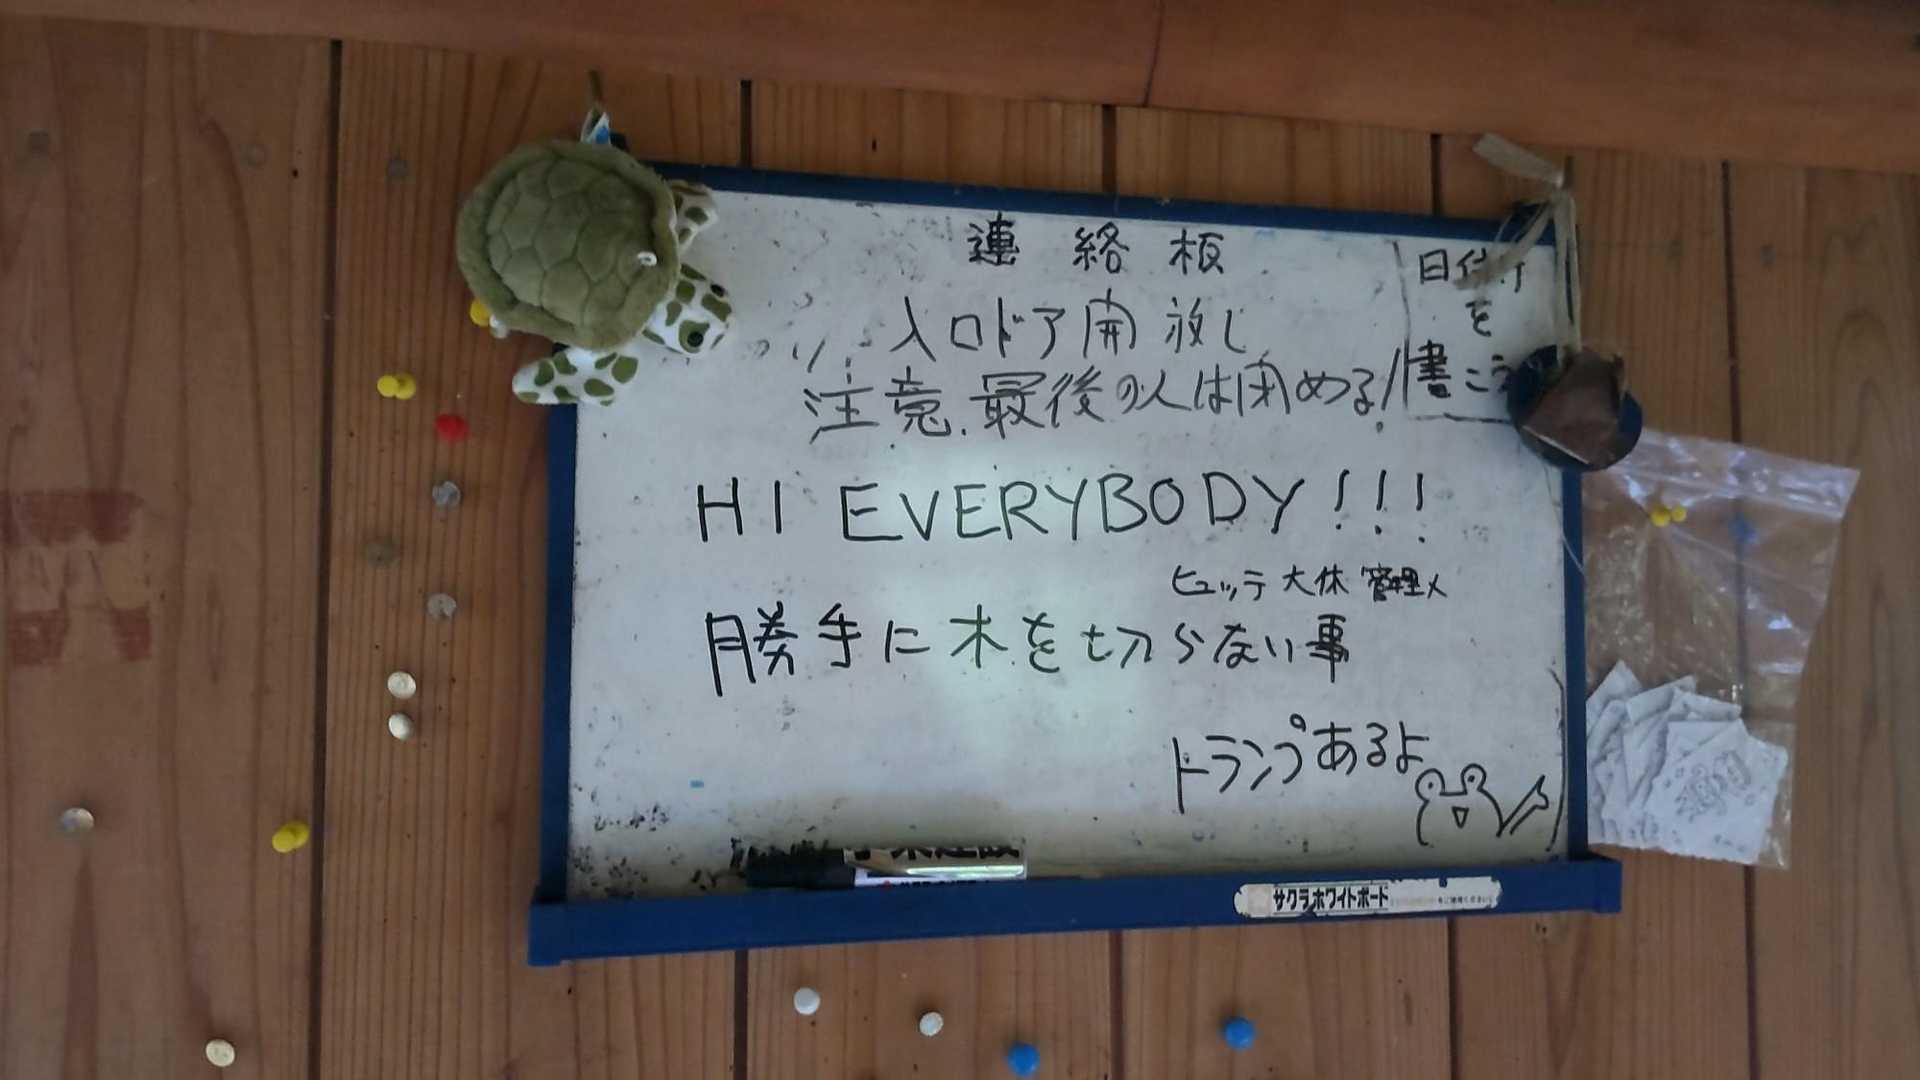 連絡板
日付け
を
書こう
入口ドア開放し
注意、最後の人は閉める!
HI EVERYBODY!!!
ヒュッテ 大休 管理人
勝手に木を切らない事
トランプあるよ
サクラホワイトボード